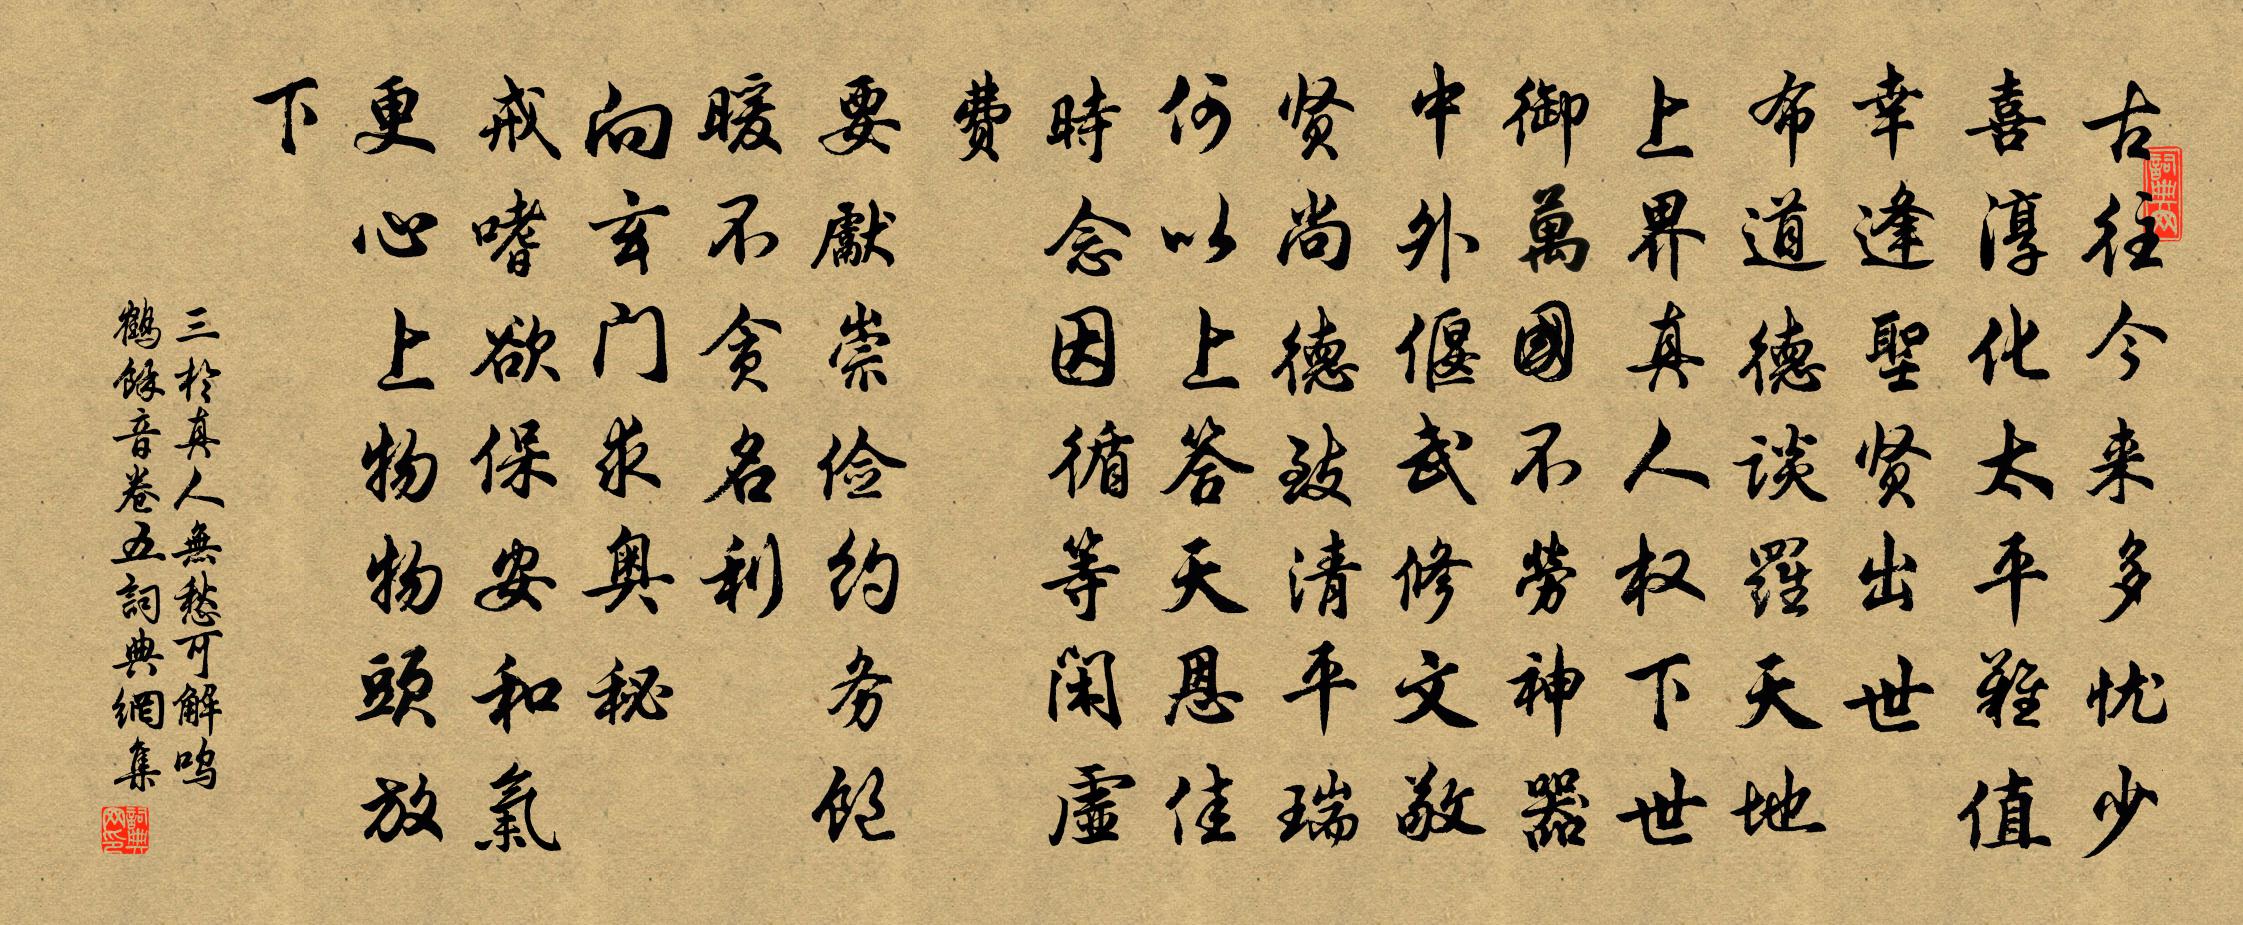 古往今来多忧少
喜淳化太平难值
幸逢聖贤出世
布道德谈羅天地
上界真人权下世
御萬國不劳神器
中外偃武修文敬
贤尚德致清平瑞
何以上答天恩佳
時念因循等闲虚
費
要獻崇俭约务饱
暖不贪名利
向玄门求奥秘
戒嗜欲保安和氣
更心上物物頭放
下
三於真人無愁可解鸣
鶴餘音卷五詞典網集
詞典网
詞典网印